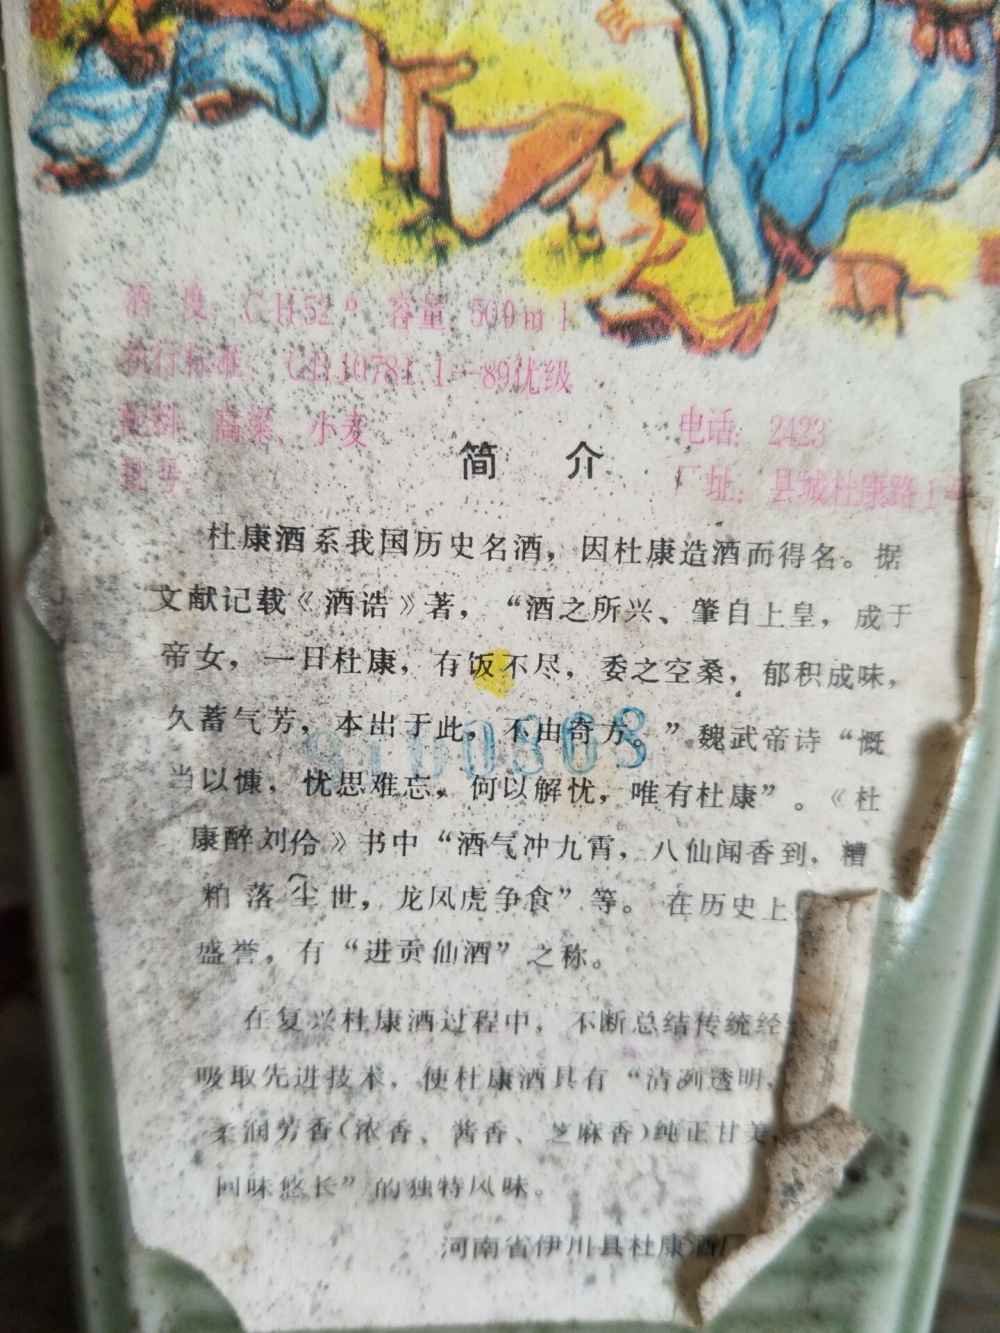 酒 度: CH52° 容量 500ml
执行标准: GB10781.1—89优级
配料: 高粱、小麦
电话: 2423
批号
厂址: 县城杜康路1号
简 介
杜康酒系我国历史名酒，因杜康造酒而得名。据
文献记载《酒诰》著，“酒之所兴、肇自上皇，成于
帝女，一日杜康，有饭不尽，委之空桑，郁积成味，
久蓄气芳，本出于此，不由奇方。”魏武帝诗“慨
当以慷，忧思难忘，何以解忧，唯有杜康”。《杜
康醉刘伶》书中“酒气冲九霄，八仙闻香到，糟
粕落尘世，龙凤虎争食”等。在历史上
盛誉，有“进贡仙酒”之称。
0363
在复兴杜康酒过程中，不断总结传统经
吸取先进技术，使杜康酒具有“清冽透明，
柔润芳香(浓香、酱香、芝麻香)纯正甘美，
回味悠长”的独特风味。
河南省伊川县杜康酒厂